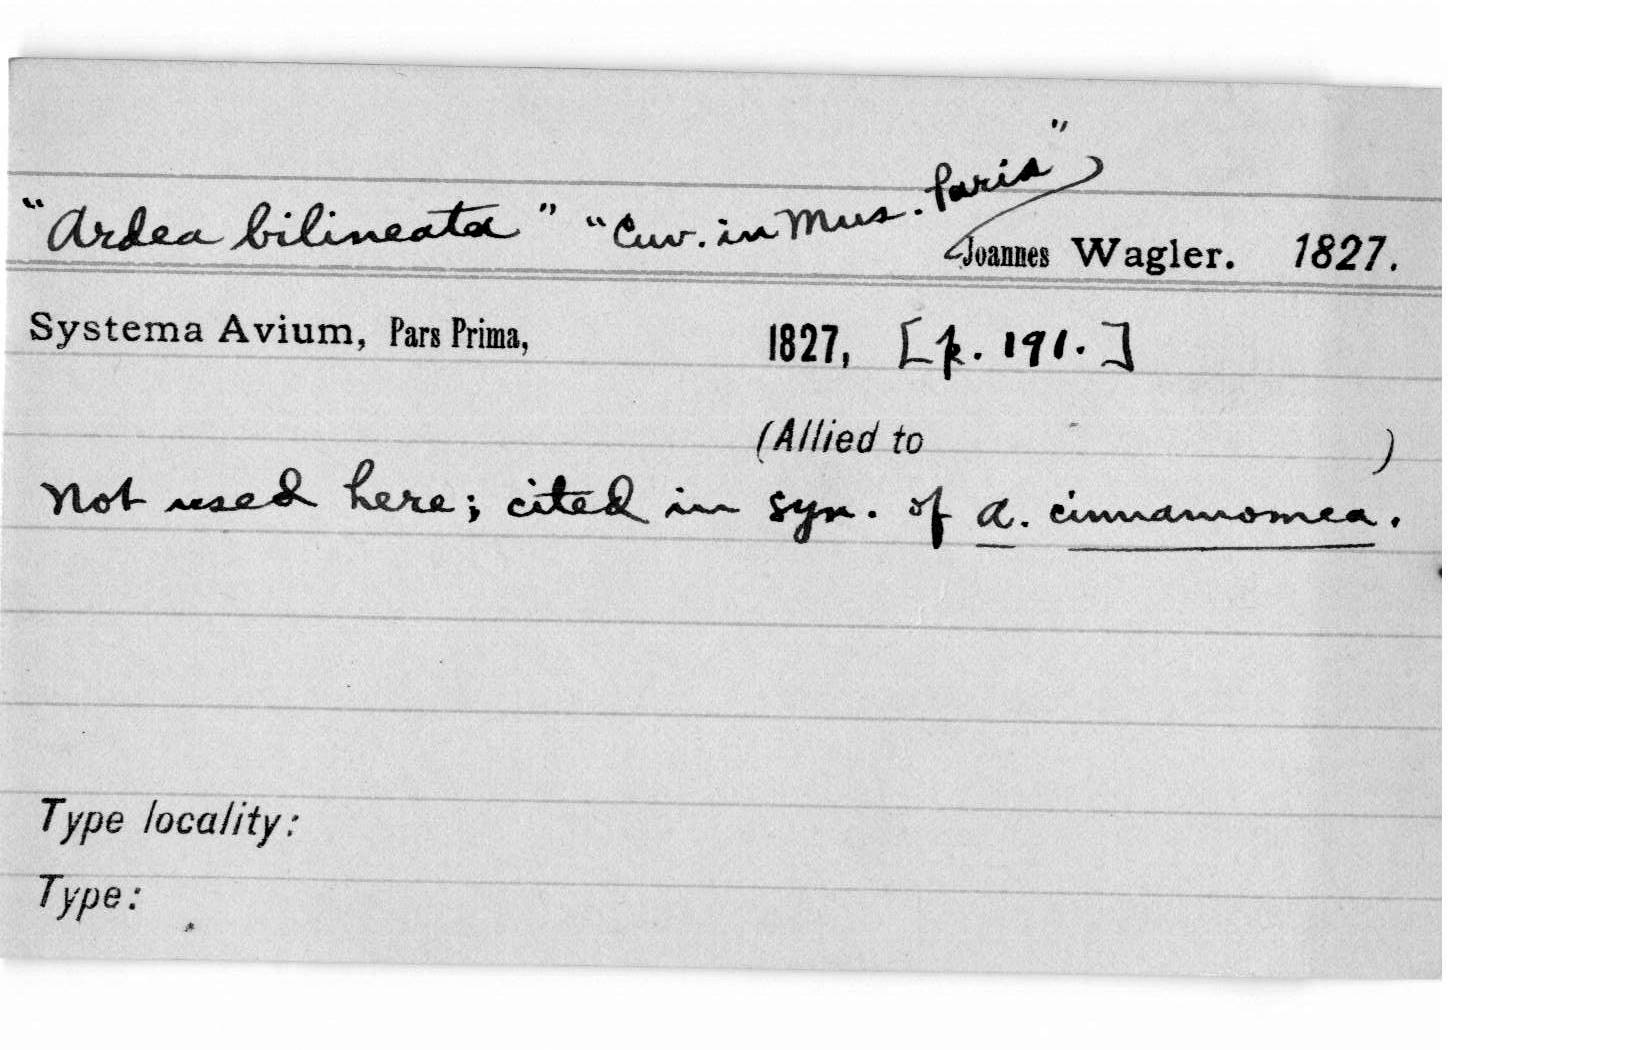 "Ardea bilineata" "Cuv. in Mus. Paris"
Joannes Wagler. 1827.
Systema Avium, Pars Prima, 1827, [p. 191.]
(Allied to )
Not used here; cited in syn. of A. cinnamomea.
Type locality:
Type: